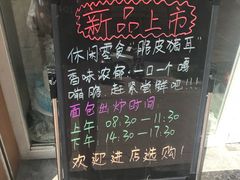 新品上市
休闲零食"脆皮猪耳"
香味浓郁、一口一个嘎
嘣脆、赶紧尝鲜吧!!!
面包出炉时间
上午 08.30-11:30
下午 14.30-17.30
欢迎进店选购!